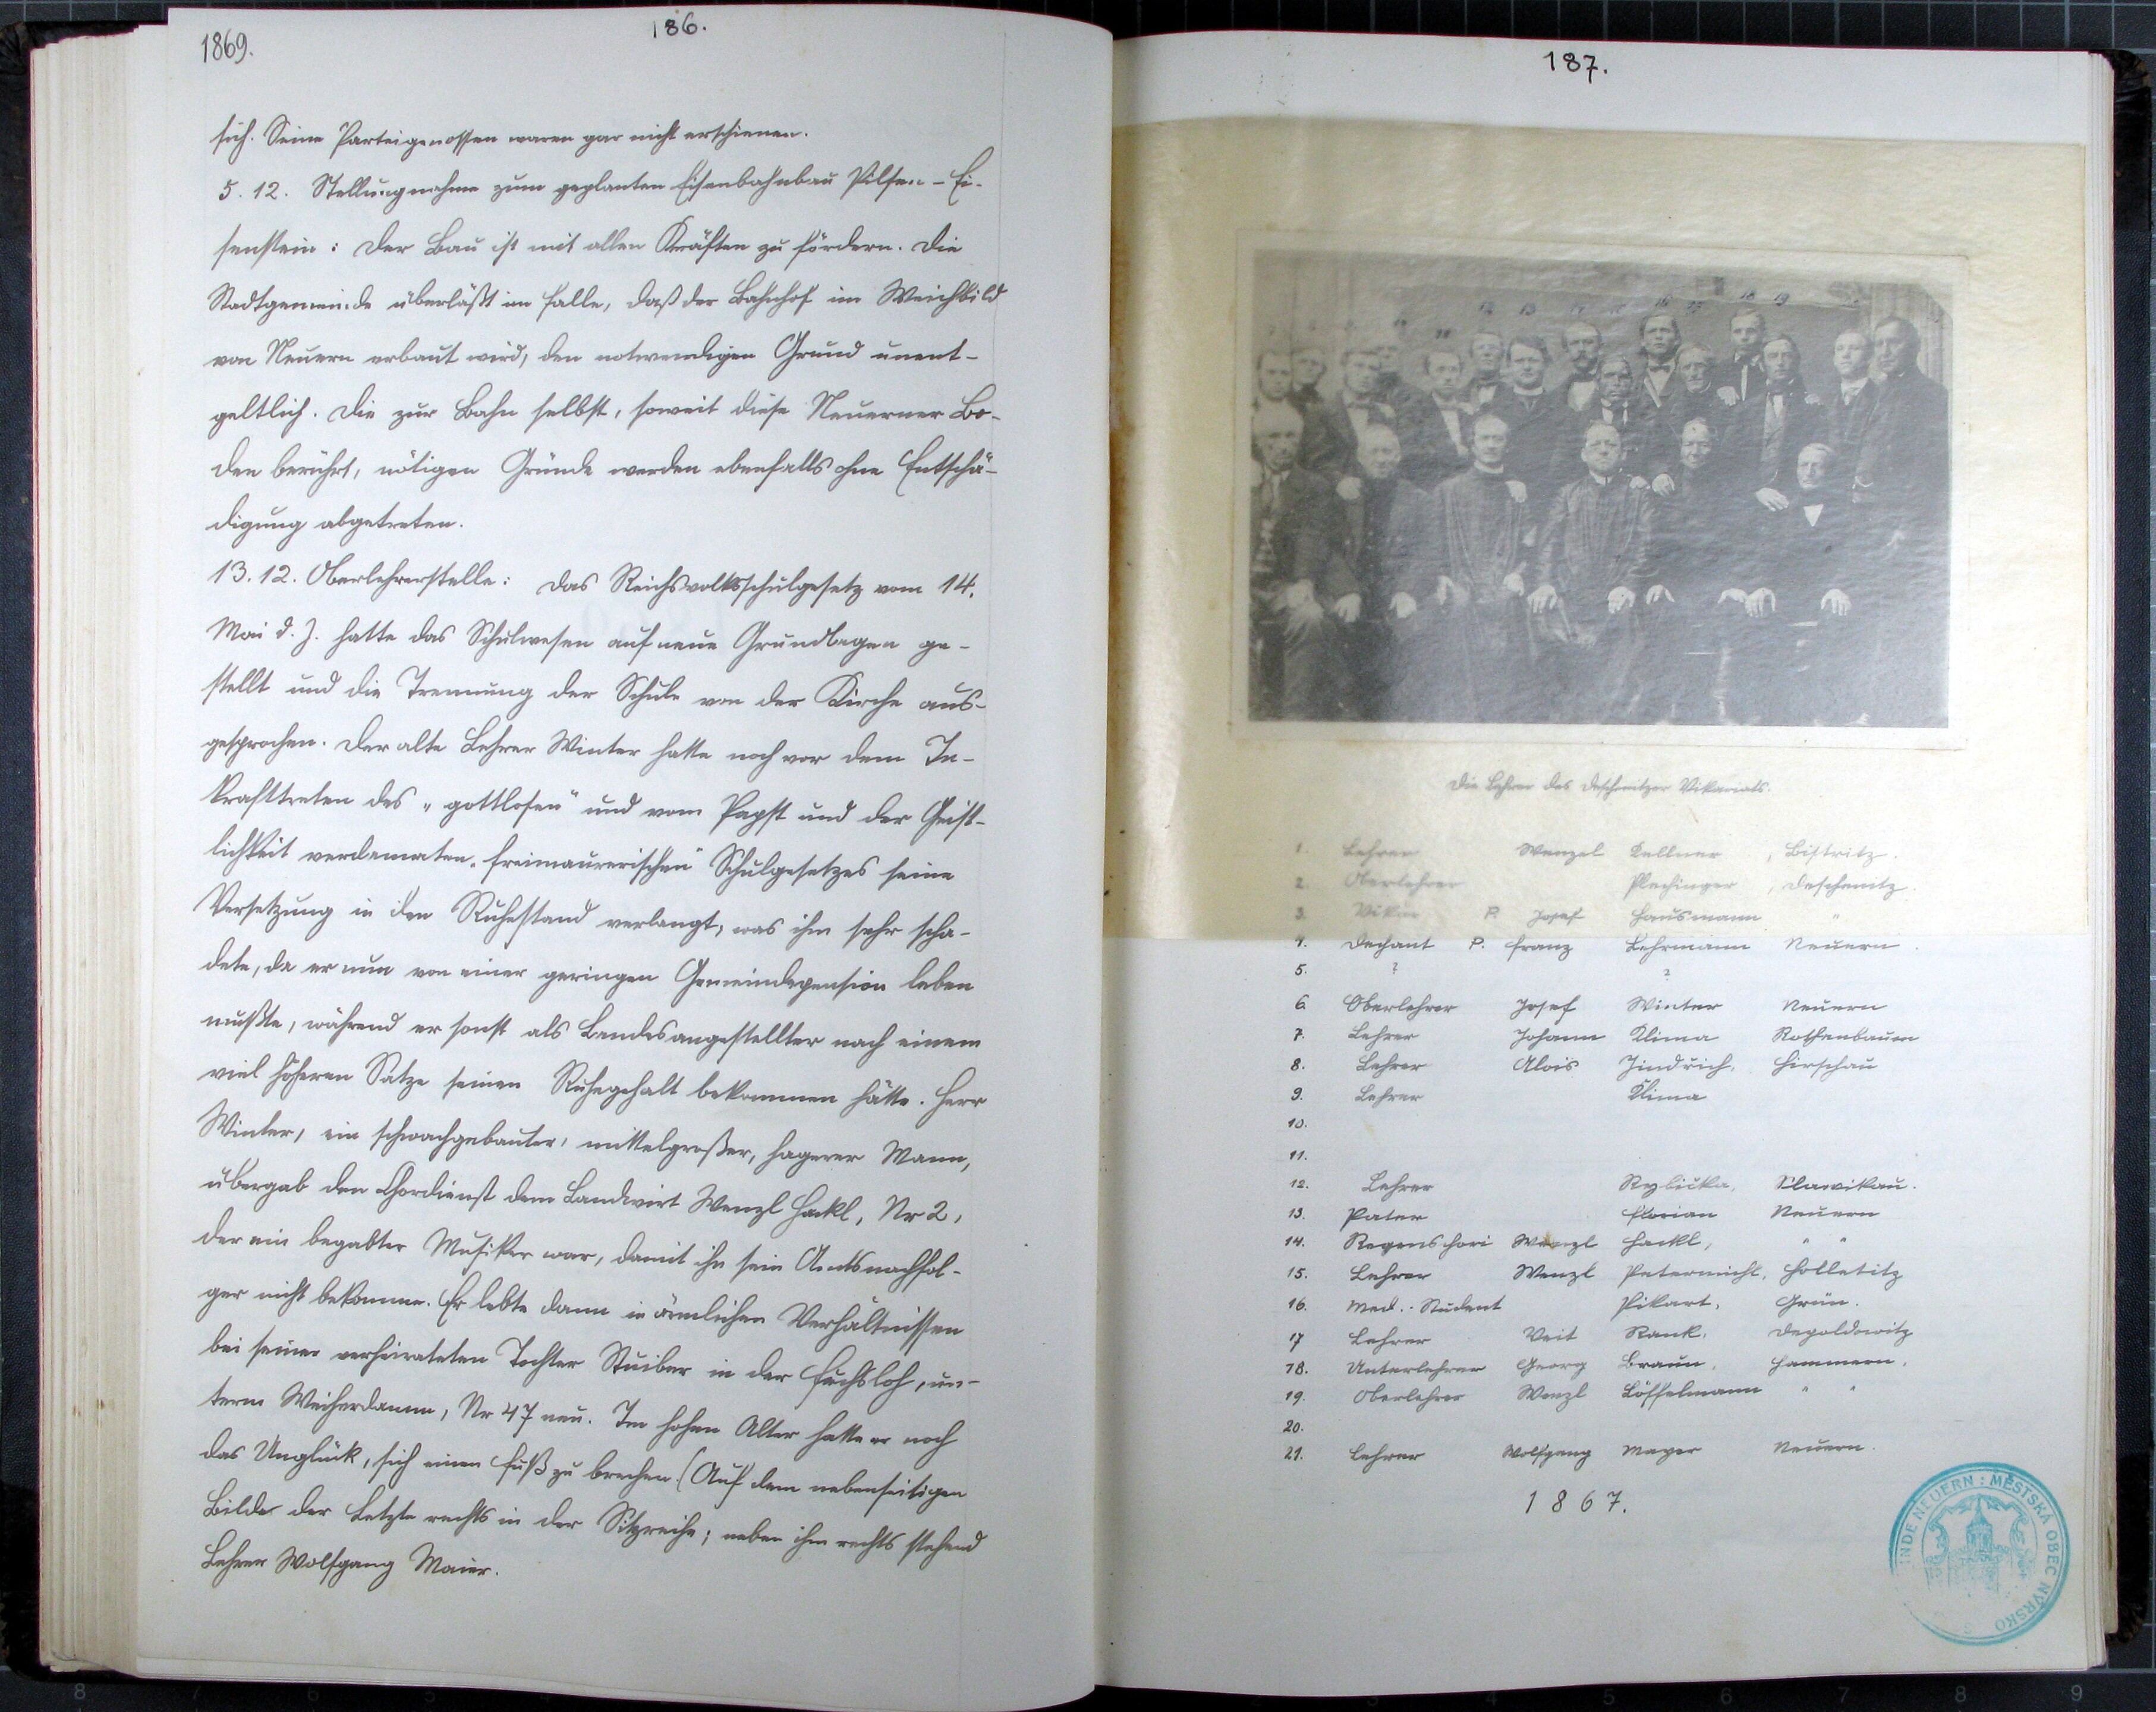 1869.
186.
sich. Seine Parteigenossen waren gar nicht erschienen.
5. 12. Stellungnahme zum geplanten Eisenbahnbau Pilsen - Ei-
senstein: Der Bau ist mit allen Kräften zu fördern. Die
Stadtgemeinde überläßt im Falle, daß der Bahnhof im Weichbild
von Neuern erbaut wird, den notwendigen Grund unent-
geltlich. Die zur Bahn selbst, soweit diese Neuerner Bo-
den berührt, nötigen Gründe werden ebenfalls ohne Entschä-
digung abgetreten.
13. 12. Oberlehrerstelle: Das Reichsvolksschulgesetz vom 14.
Mai d. J. hatte das Schulwesen auf neue Grundlagen ge-
stellt und die Trennung der Schule von der Kirche aus-
gesprochen. Der alte Lehrer Winter hatte noch vor dem In-
krafttreten des „gottlosen" und vom Papst und der Geist-
lichkeit verdammten „freimaurerischen" Schulgesetzes seine
Versetzung in den Ruhestand verlangt, was ihm sehr scha-
dete, da er nun von einer geringen Gemeindepension leben
mußte, während er sonst als Landesangestellter nach einem
viel höheren Satze seinen Ruhegehalt bekommen hätte. Herr
Winter, ein schwachgebauter, mittelgroßer, hagerer Mann,
übergab den Chordienst dem Landwirt Wenzl Hackl, Nr 2,
der ein begabter Musiker war, damit ihn sein Amtsnachfol-
ger nicht bekomme. Er lebte dann in ärmlichen Verhältnissen
bei seiner verheirateten Tochter Stuiber in der Fuchsloh, un-
term Weiherdamm, Nr 47 neu. Im hohen Alter hatte er noch
das Unglück, sich einen Fuß zu brechen. (Auf dem nebenseitigen
Bilde der Letzte rechts in der Sitzreihe; neben ihm rechts stehend
Lehrer Wolfgang Maier.
187.
Die Lehrer des Deschenitzer Vikariats.
1. Lehrer Wenzel Kellner, Bistritz.
2. Oberlehrer Plechinger, Deschenitz.
3. Vikar P. Josef Hausmann "
4. Dechant P. Franz Lehrmann Neuern.
5. ? ?
6. Oberlehrer Josef Winter Neuern
7. Lehrer Johann Klima Rothenbaum
8. Lehrer Alois Jindrich, Hirschau
9. Lehrer Klima
10.
11.
12. Lehrer Rylička, Slawikau.
13. Pater Florian Neuern
14. Regens chori Wenzl Hackl, " "
15. Lehrer Wenzl Petermichl, Holletitz
16. Med.-Student Pikart, Grün.
17 Lehrer Veit Rank, Depoldowitz
18. Unterlehrer Georg Braun, Hammern.
19. Oberlehrer Wenzl Löffelmann " "
20.
21. Lehrer Wolfgang Mayer Neuern.
1867.
INDE NEUERN: MĚSTSKÁ OBEC NÝRSKO